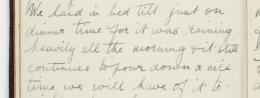 We laid in bed till just on
dinner time for it was raining
heavily all the morning & it still
continues to pour down a nice
time we will have of it to-